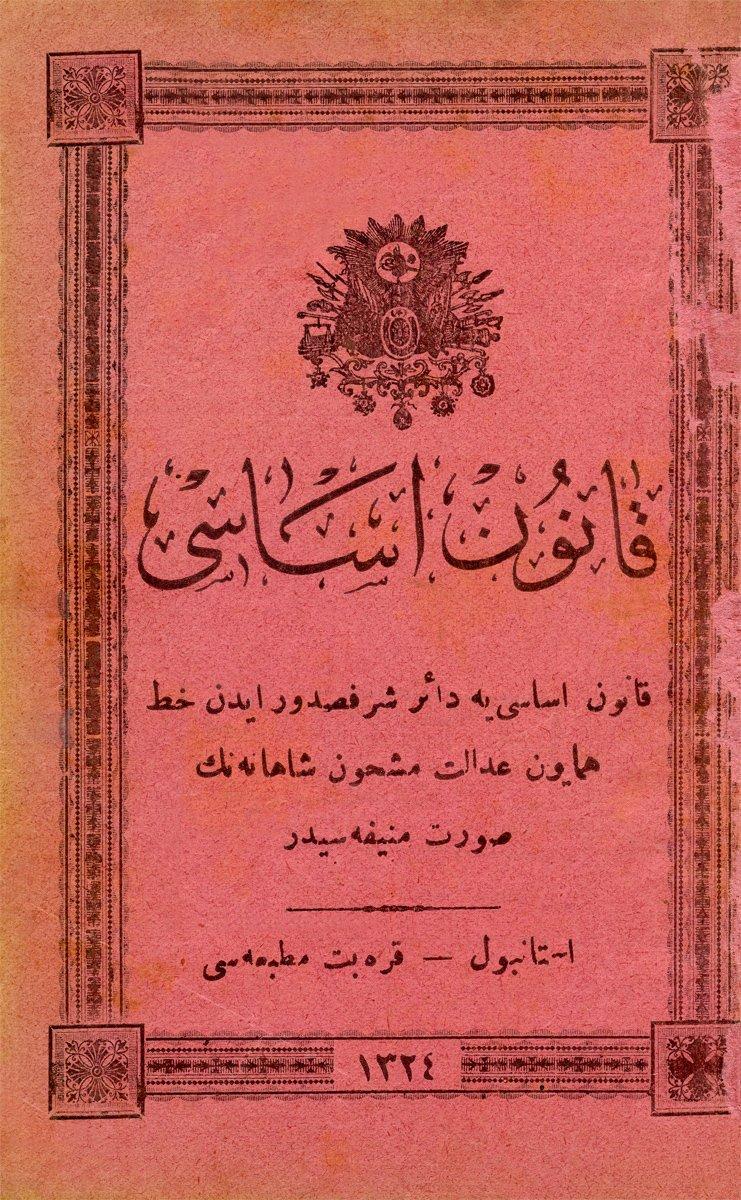 قانون اساسی
قانون اساسی یه دائر شرفصدور ایدن خط
همایون عدالت مشحون شاهانه نك
صورت منیفه سیدر
استانبول — قره بت مطبعه سی
١٣٢٤